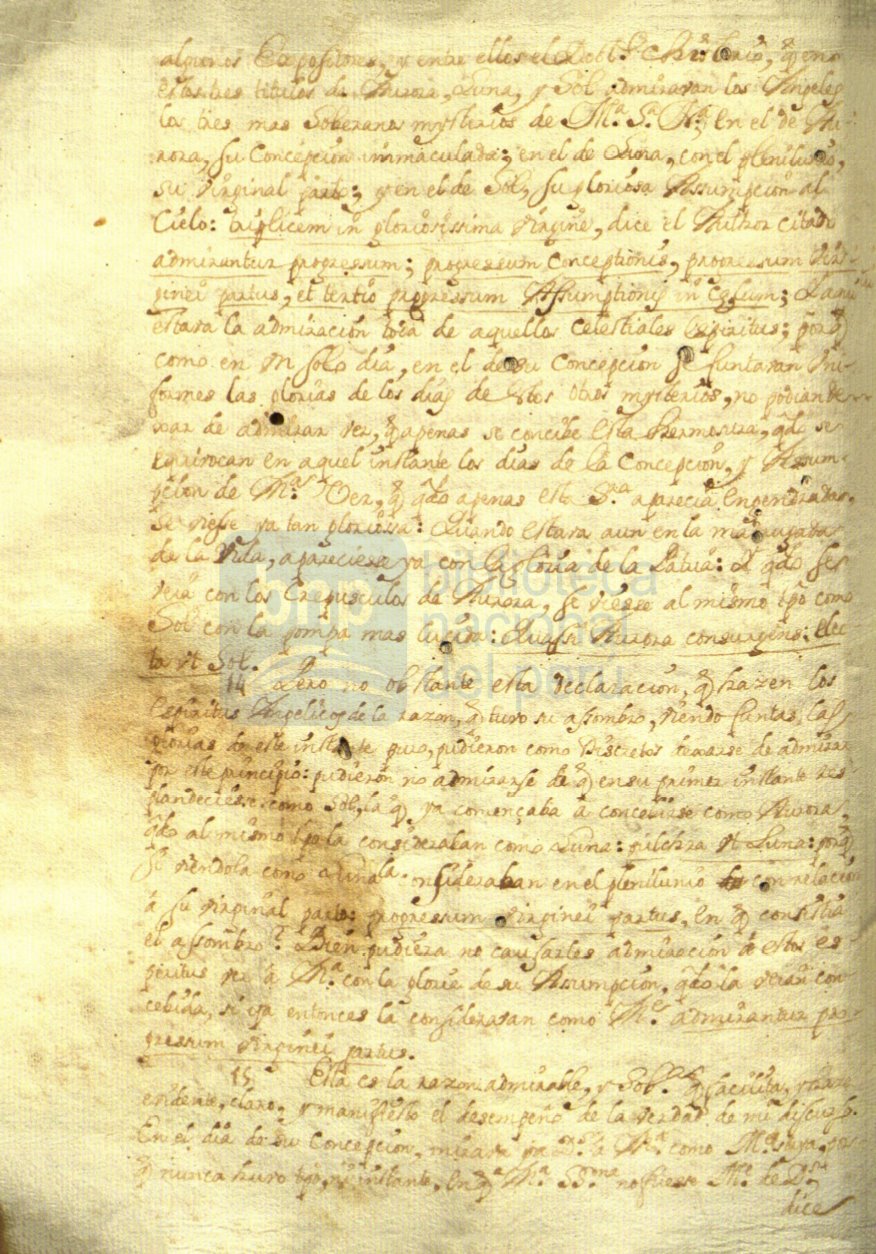 algunos Expositores, y entre ellos el Doct.
estos tres titulos de Aurora, Luna, y Sol admiravan los Angeles
los tres mas Soberanos mysterios de M.ª S.ª N.ª; En el de Au-
rora, su Concepcion immaculada; en el de Luna, con el plenilunio,
su virginal parto; y en el de Sol, su gloriosa Assumpcion al
Cielo: triplicem in gloriosissima Virgine, dice el Author citado
admirantur progressum; progressum Conceptionis, progressum Vir-
ginei partus, et tertio progressum Assumptionis in Cælum;
estava la admiracion toda de aquellos celestiales Espiritus; porq
como en Vn solo dia, en el de su Concepcion se juntaran Vni-
formes las glorias de los dias de estos otros mysterios, no podian de-
xar de admirar ver, q apenas se concibe esta hermosura, qdo se
equivocan en aquel instante los dias de la Concepcion, y Assum-
pcion de M.ª Ver, q qdo apenas esta S.ra aparecia engendrada,
se viesse ya tan gloriosa: Quando estava aun en la madrugada
de la Vida, apareciesse ya con la gloria de la Patria: qdo se
veia con los Crepusculos de Aurora, se viesse al mismo tpo como
Sol con la pompa mas lucida: Quasi Aurora consurgens: elec-
ta Vt Sol.
14 Pero no obstante esta declaracion, q hazen los
Espiritus Angelicos de la razon, q tuvo su assombro, viendo juntas las
glorias de este instante puro, pudieron como Discretos dexarse de admirar
por este principio: pudieron no admirarse de q en su primer instante res-
plandeciesse como Sol, la q ya començaba à concebirse como Aurora,
qdo al mismo tpo la consideraban como Luna: pulchra Vt Luna: porq
si viendola como Luna la consideraban en el plenilunio con relacion
à su virginal parto: progressum virginei partus, en q consistia
el assombro? Bien pudiera no causarles admiracion à estos es-
piritus ver à M.ª con la gloria de su Assumpcion, qdo la veian con-
cebida, si ya entonces la consideravan como M.e admirantur pro-
gressum virginei partus.
15 Esta es la razon admirable, y q facilita, y
evidente, claro, y manifiesto el desempeño de la verdad de mi discurso.
En el dia de su Concepcion, mirava ya à M.ª como M.e suya,
q nunca huvo tpo, ni instante, en q M.ª no fuesse M.e de D.s
dice